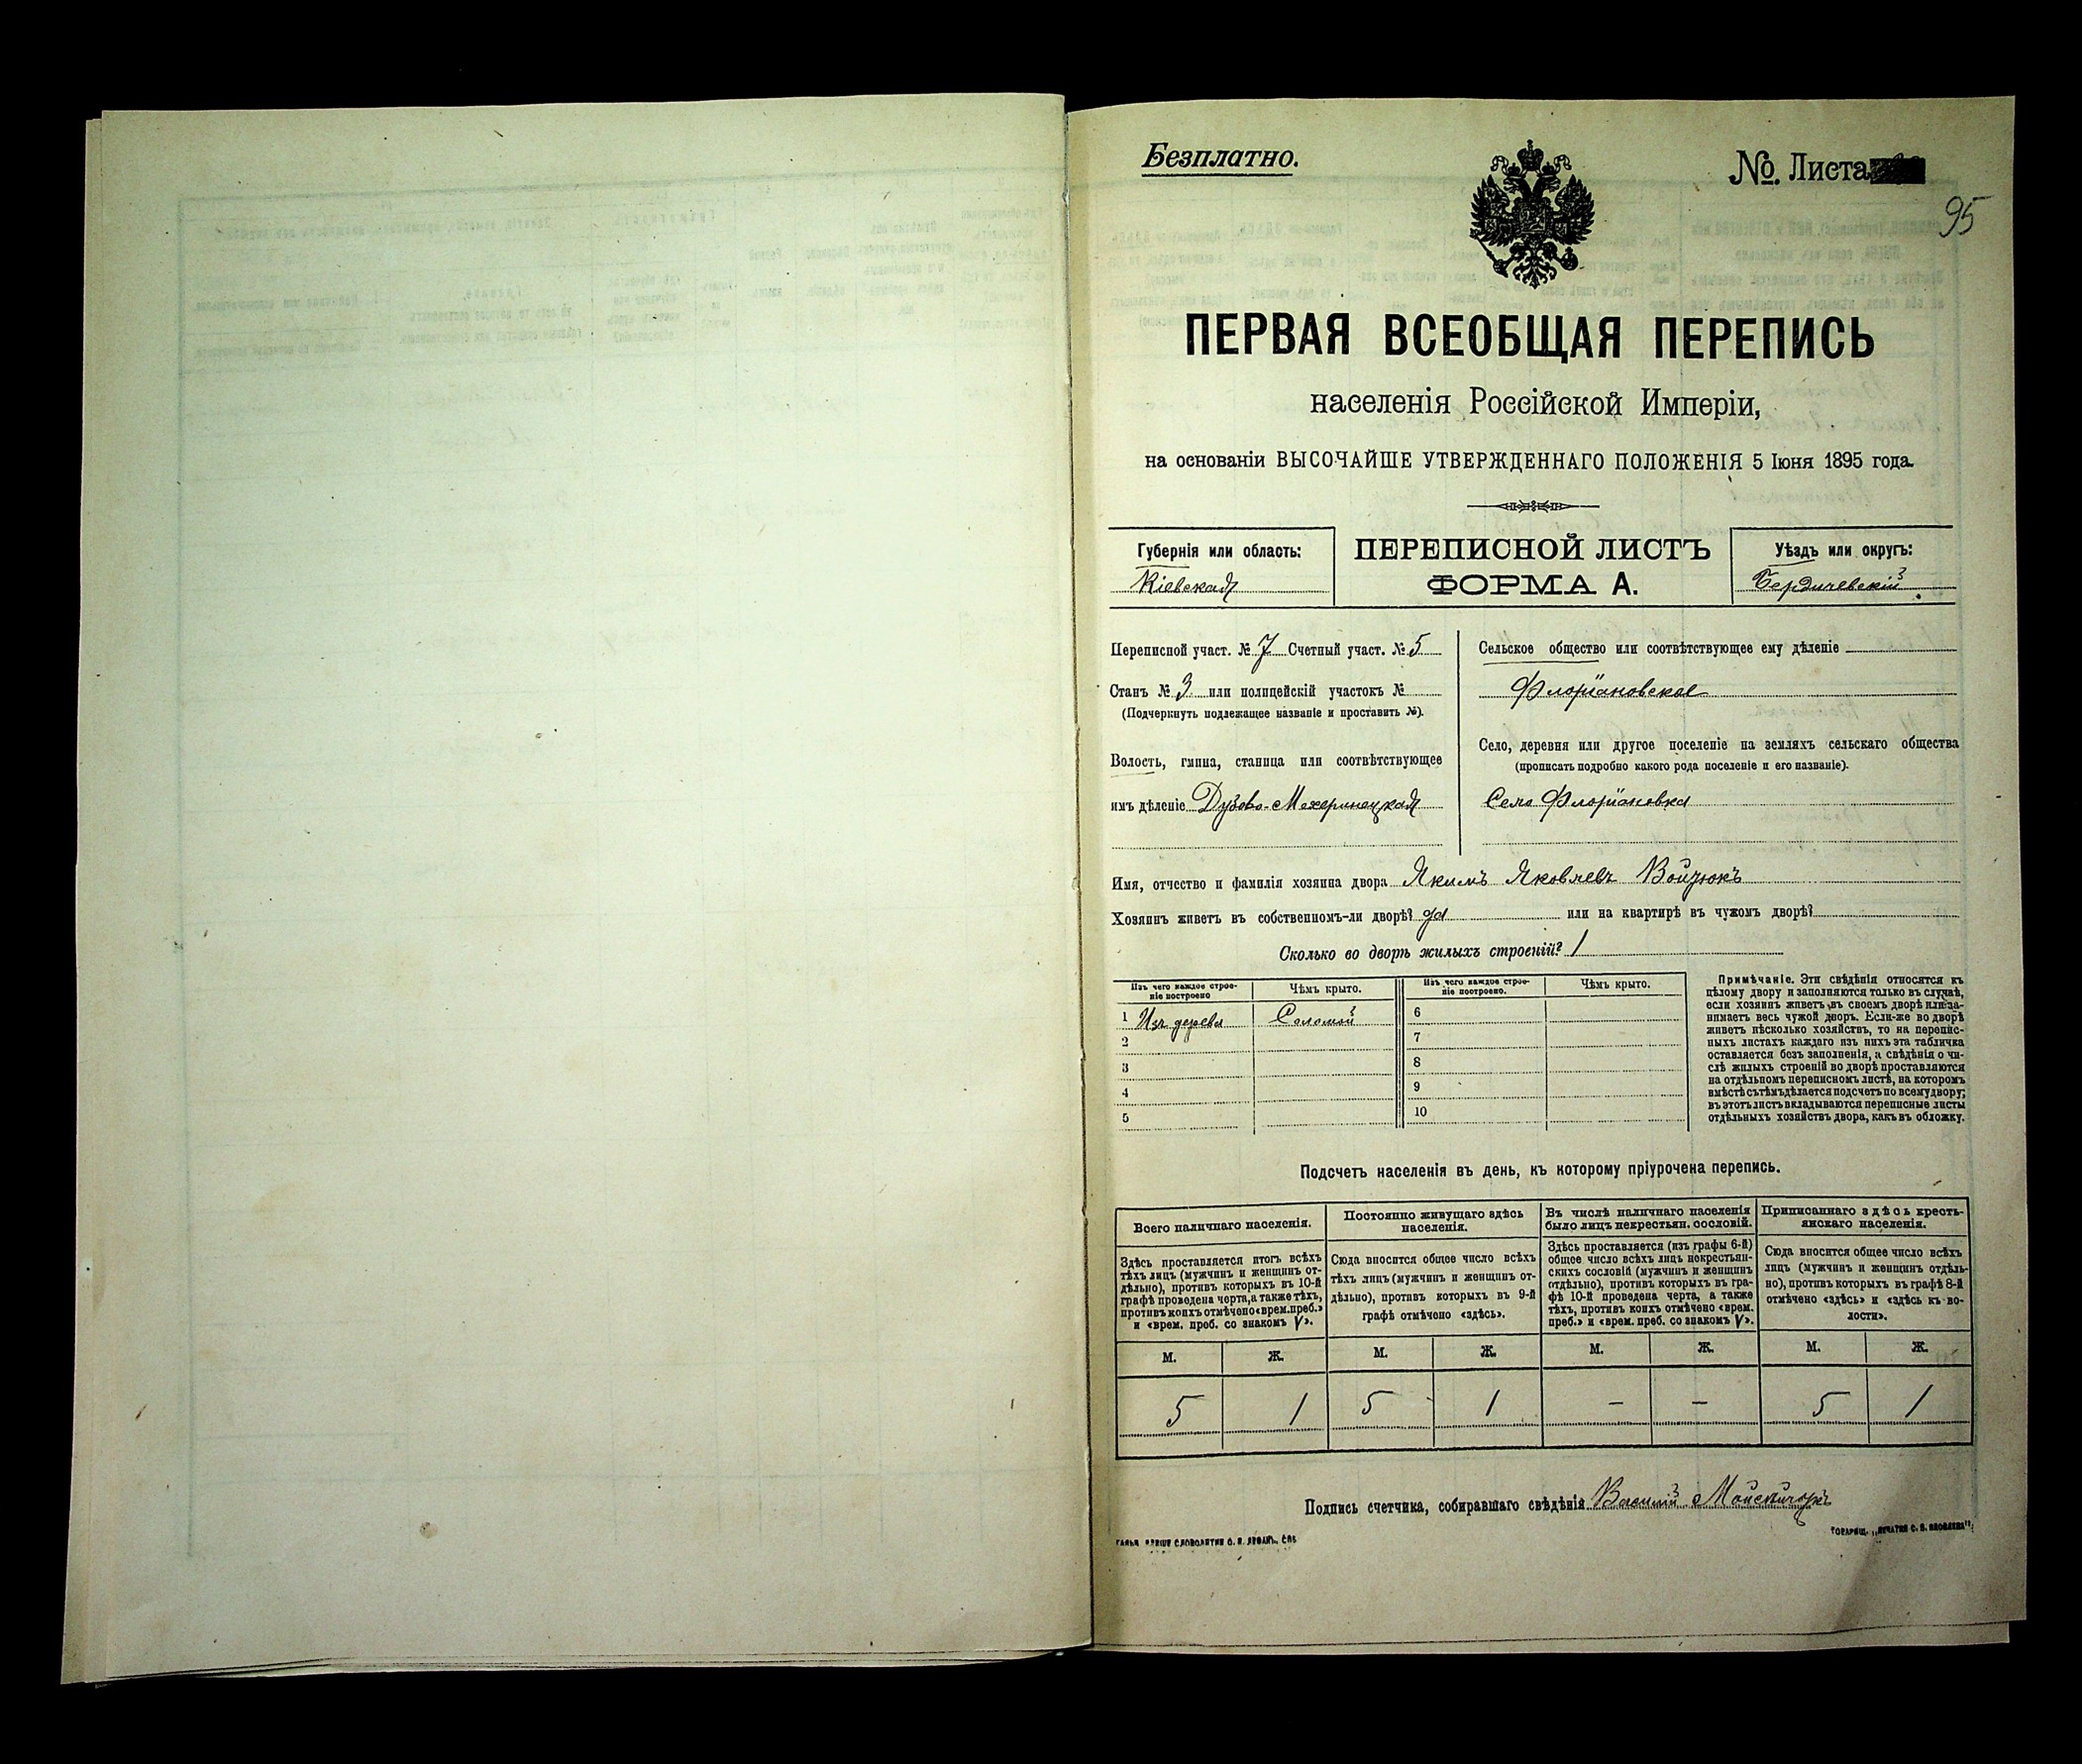 Безплатно.
№. Листа
95
ПЕРВАЯ ВСЕОБЩАЯ ПЕРЕПИСЬ
населенія Россійской Имперіи,
на основаніи ВЫСОЧАЙШЕ УТВЕРЖДЕННАГО ПОЛОЖЕНІЯ 5 Іюня 1895 года.
Губернія или область:
Кіевская
ПЕРЕПИСНОЙ ЛИСТЪ
ФОРМА А.
Уѣздъ или округъ:
Бердичевскій
Переписной участ. № 7 Счетный участ. № 5
Станъ № 3 или полицейскій участокъ №
(Подчеркнуть подлежащее названіе и проставить №).
Волость, гмина, станица или соотвѣтствующее
имъ дѣленіе Дубово-Махаринецкая
Сельское общество или соотвѣтствующее ему дѣленіе
Флоріановское
Село, деревня или другое поселеніе на земляхъ сельскаго общества
(прописать подробно какого рода поселеніе и его названіе).
Село Флоріановка
Имя, отчество и фамилія хозяина двора Якимъ Яковлевъ Войтюкъ
Хозяинъ живетъ въ собственномъ-ли дворѣ? да или на квартирѣ въ чужомъ дворѣ?
Сколько во дворѣ жилыхъ строеній? 1
Изъ чего каждое строе-
ніе построено
Чѣмъ крыто.
Изъ чего каждое строе-
ніе построено.
Чѣмъ крыто.
1 Изъ дерева Соломой 6
2 7
3 8
4 9
5 10
Примѣчаніе. Эти свѣдѣнія относятся къ
цѣлому двору и заполняются только въ случаѣ,
если хозяинъ живетъ въ своемъ дворѣ или за-
нимаетъ весь чужой дворъ. Если-же во дворѣ
живетъ нѣсколько хозяйствъ, то на перепис-
ныхъ листахъ каждаго изъ нихъ эта табличка
оставляется безъ заполненія, а свѣдѣнія о чи-
слѣ жилыхъ строеній во дворѣ проставляются
на отдѣльномъ переписномъ листѣ, на которомъ
вмѣстѣ съ тѣмъ дѣлается подсчетъ по всему двору;
въ этотъ листъ вкладываются переписные листы
отдѣльныхъ хозяйствъ двора, какъ въ обложку.
Подсчетъ населенія въ день, къ которому пріурочена перепись.
Всего наличнаго населенія.
Постоянно живущаго здѣсь
населенія.
Въ числѣ наличнаго населенія
было лицъ некрестьян. сословій.
Приписаннаго здѣсь кресть-
янскаго населенія.
Здѣсь проставляется итогъ всѣхъ
тѣхъ лицъ (мужчинъ и женщинъ от-
дѣльно), противъ которыхъ въ 10-й
графѣ проведена черта, а также тѣхъ,
противъ коихъ отмѣчено «врем. преб.»
и «врем. преб. со знакомъ V».
Сюда вносится общее число всѣхъ
тѣхъ лицъ (мужчинъ и женщинъ от-
дѣльно), противъ которыхъ въ 9-й
графѣ отмѣчено «здѣсь».
Здѣсь проставляется (изъ графы 6-й)
общее число всѣхъ лицъ некрестьян-
скихъ сословій (мужчинъ и женщинъ
отдѣльно), противъ которыхъ въ гра-
фѣ 10-й проведена черта, а также
тѣхъ, противъ коихъ отмѣчено «врем.
преб.» и «врем. преб. со знакомъ V».
Сюда вносится общее число всѣхъ
лицъ (мужчинъ и женщинъ отдѣль-
но), противъ которыхъ въ графѣ 8-й
отмѣчено «здѣсь» и «здѣсь къ во-
лости».
М. Ж. М. Ж. М. Ж. М. Ж.
5 1 5 1 – – 5 1
Подпись счетчика, собиравшаго свѣдѣнія Василій